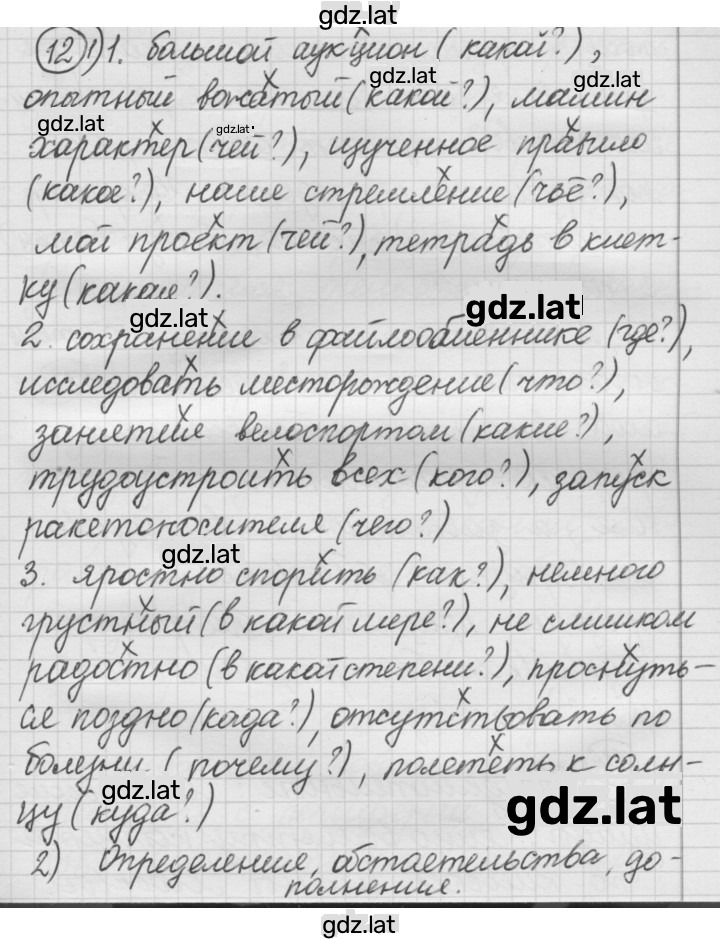 gdz.lat
12 1) 1. большой аукцион (какой?),
gdz.lat
gdz.lat
опытный вожатый (какой?), мамин
gdz.lat
gdz.lat
характер (чей?), изученное правило
(какое?), наше стремление (чьё?),
мой проект (чей?), тетрадь в клет-
ку (какая?).
gdz.lat
gdz.lat
2. сохранение в файлообменнике (где?),
исследовать месторождение (что?),
занятие велоспортом (какие?),
трудоустроить всех (кого?), запуск
ракетоносителя (чего?)
gdz.lat
3. яростно спорить (как?), немного
грустный (в какой мере?), не слишком
радостно (в какой степени?), проснуть-
ся поздно (когда?), отсутствовать по
болезни (почему?), полететь к солн-
gdz.lat
цу (куда?)
gdz.lat
2) Определения, обстаетельства, до-
полнения.
gdz.lat